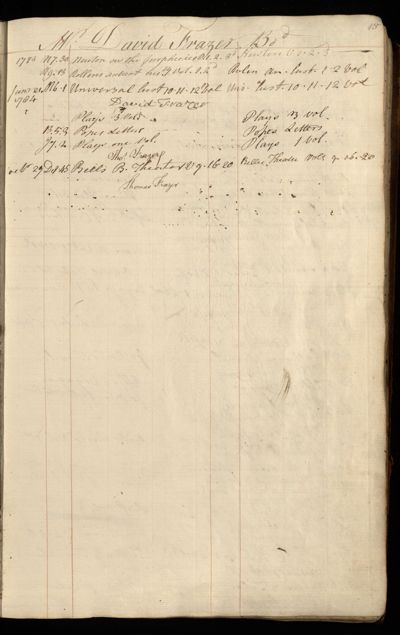 Mr David Frazer
1784 N7.30 Newton on the Prophecies V. 2. 3d Newton V v. 2. 3
R9.13 Rollins antient hist Vol. 1. 2d Rolin An. hist. 1. 2 Vol
Janr 21 R6.1 Universal hist 10. 11. 12 Vol Uni. hist 10. 11. 12 Vol
1784 David Frazer
Plays 3 Vols Plays 3 Vol.
B53 Popes Letters Popes Letters
J7.4 Plays one Vol. Plays 1 Vol.
Thos Frazer
29 D4 45 Bells B. Theater V 9. 16. 20 Bells Theater Voll 9. 16. 20
Thomas Frazer